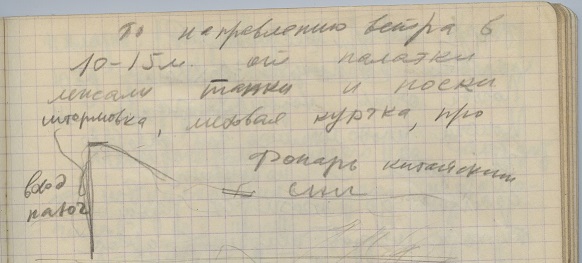 По направлению ветра в
10-15 м. от палатки
лежали тапки и носки
штормовка, меховая куртка, про
Фонарь китайский
вход
палат